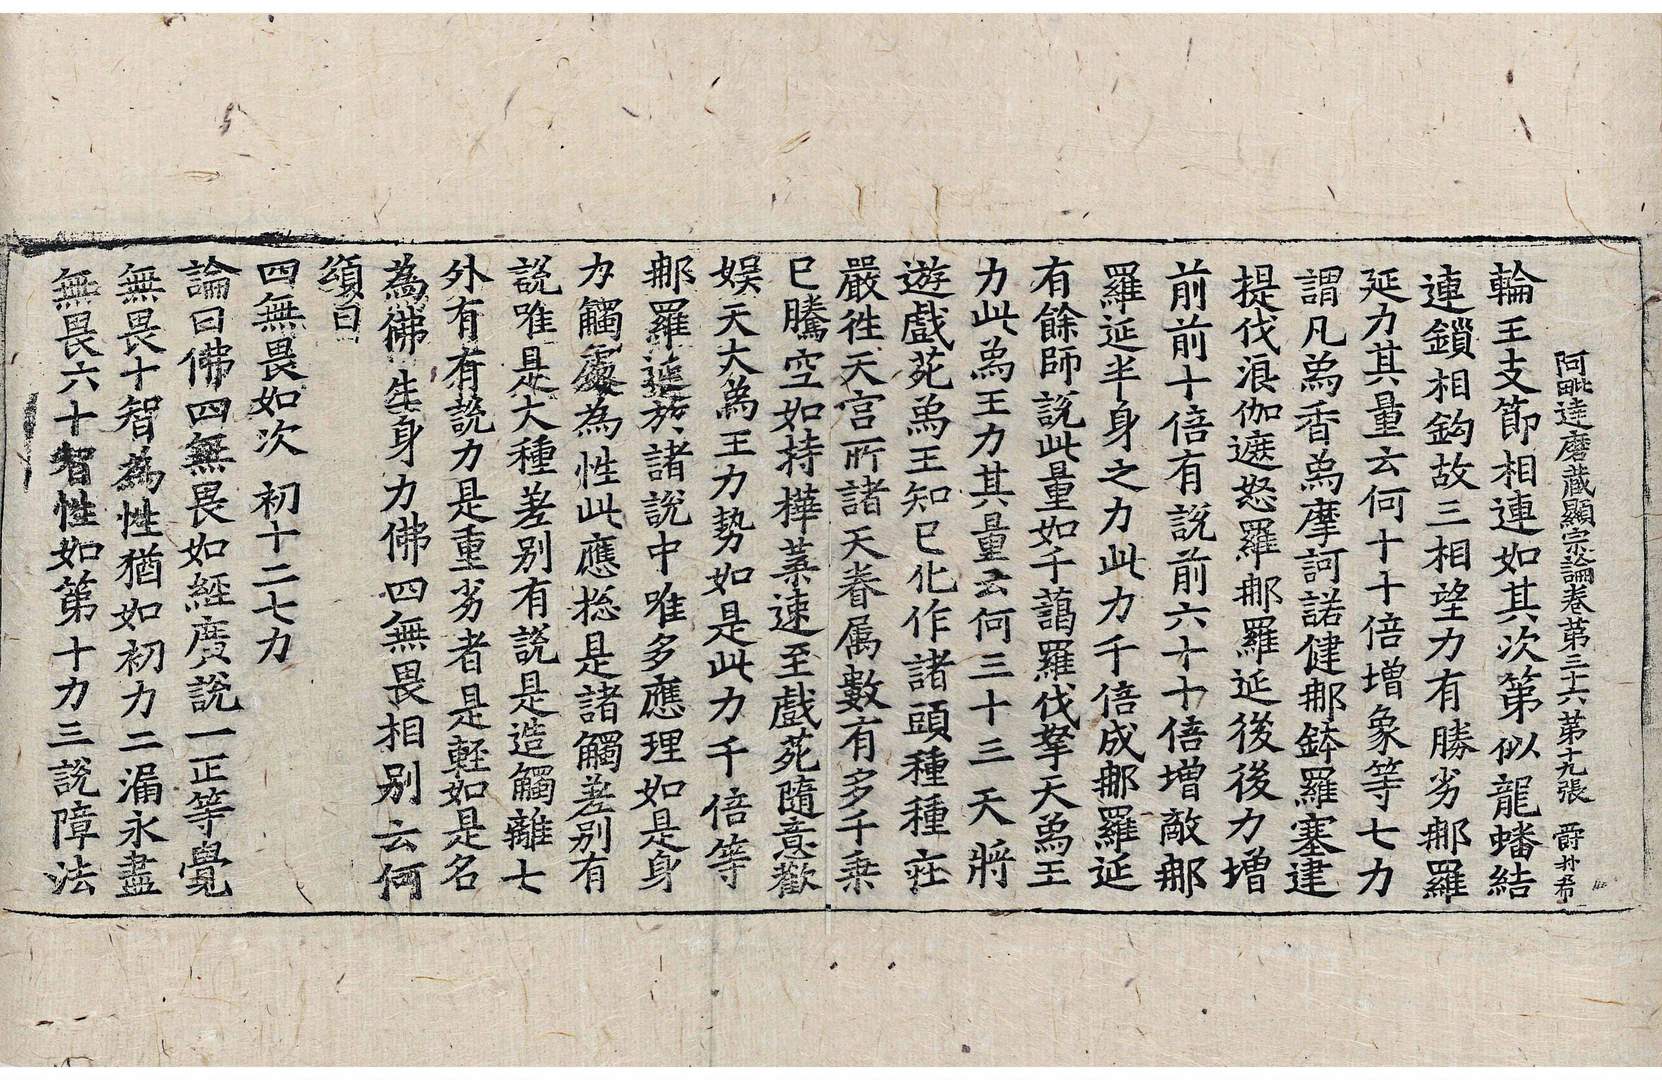 阿毗達磨藏顯宗論卷第三十六 第十九張 爵
輪王支節相連如其次第似龍蟠結
連鎖相鈎故三相望力有勝劣那羅
延力其量云何十十倍增象等七力
謂凡爲香爲摩訶諾健那鉢羅塞建
提伐浪伽遮怒羅那羅延後後力增
前前十倍有說前六十十倍增敵那
羅延半身之力此力千倍成那羅延
有餘師說此量如千藹羅伐拏天爲王
力此爲王力其量云何三十三天將
遊戲苑爲王知已化作諸頭種種莊
嚴徃天宮所諸天眷属數有多千乗
已騰空如持樺葉速至戲苑隨意歡
娛天大爲王力勢如是此力千倍等
那羅延於諸說中唯多應理如是身
力觸處為性此應捴是諸觸差別有
說唯是大種差別有說是造觸離七
外有有說力是重劣者是輕如是名
為佛生身力佛四無畏相別云何
頌曰
四無畏如次 初十二七力
論曰佛四無畏如經廣說一正等覺
無畏十智為性猶如初力二漏永盡
無畏六十智性如第十力三說障法